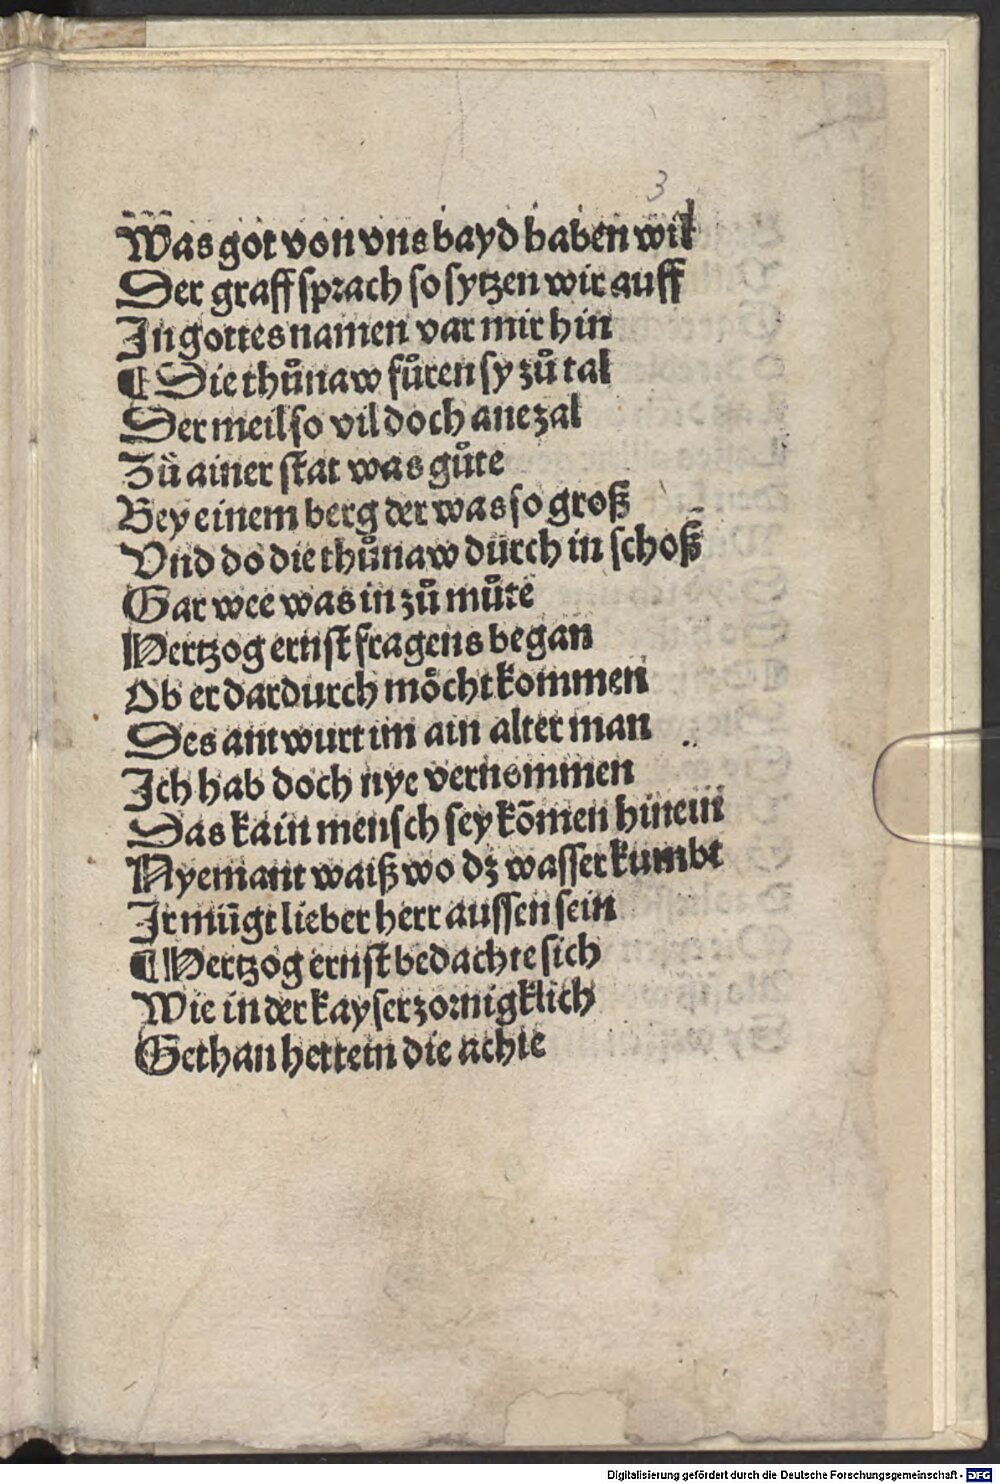 3
Was got von vns bayd haben wil
Der graff sprach so sytzen wir auff
In gottes namen var mir hin
¶ Die thůnaw fůren sy zů tal
Der meil so vil doch ane zal
Zů ainer stat was gůte
Bey einem berg der was so groß
Vnd do die thůnaw durch in schoß
Gar wee was in zů můte
Hertzog ernst fragens began
Ob er dardurch möcht kommen
Des antwurt im ain alter man
Ich hab doch nye vernommen
Das kain mensch sey kõmen hinein
Nyemant waiß wo dz wasser kumbt
Ir mügt lieber herr aussen sein
¶ Hertzog ernst bedachte sich
Wie in der kayser zornigklich
Gethan hett ein die achte
Digitalisierung gefördert durch die Deutsche Forschungsgemeinschaft - DFG